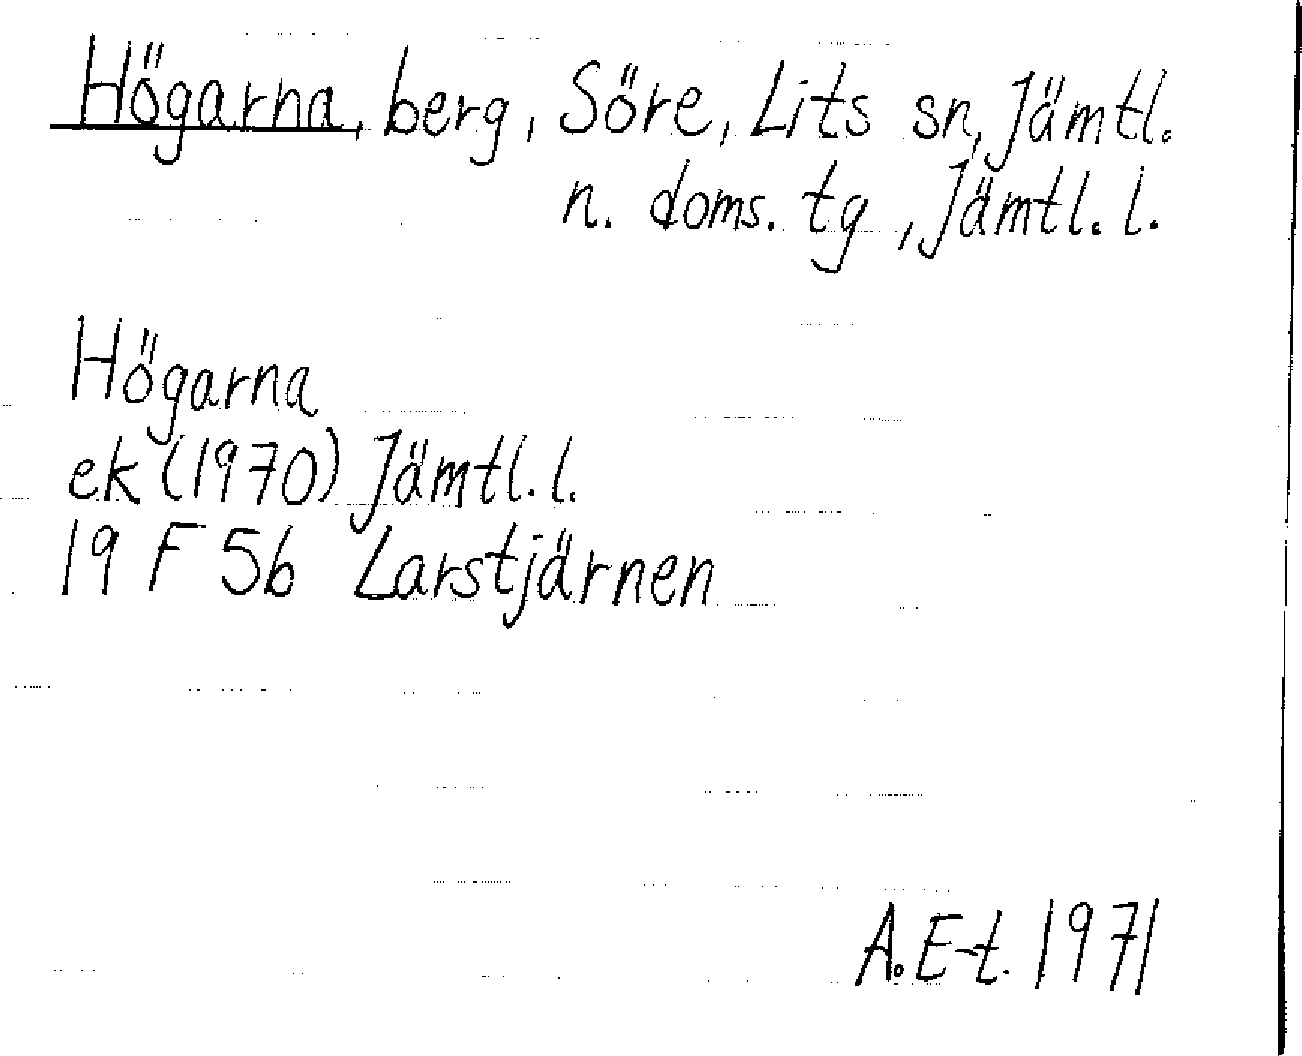 Högarna, berg, Söre, Lits sn, Jämtl.
n. doms. tg, Jämtl. l.
Högarna
ek (1970) Jämtl. l.
19 F 5b Larstjärnen
A. E-t. 1971